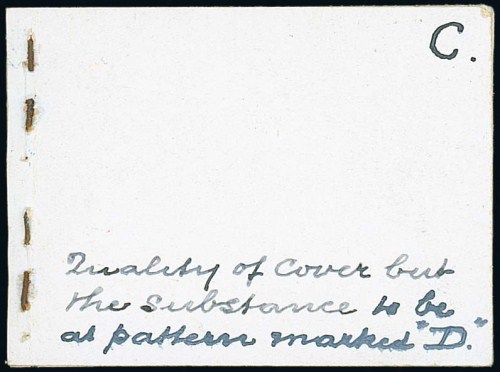 C.
Quality of Cover but
the substance to be
at pattern marked "D."